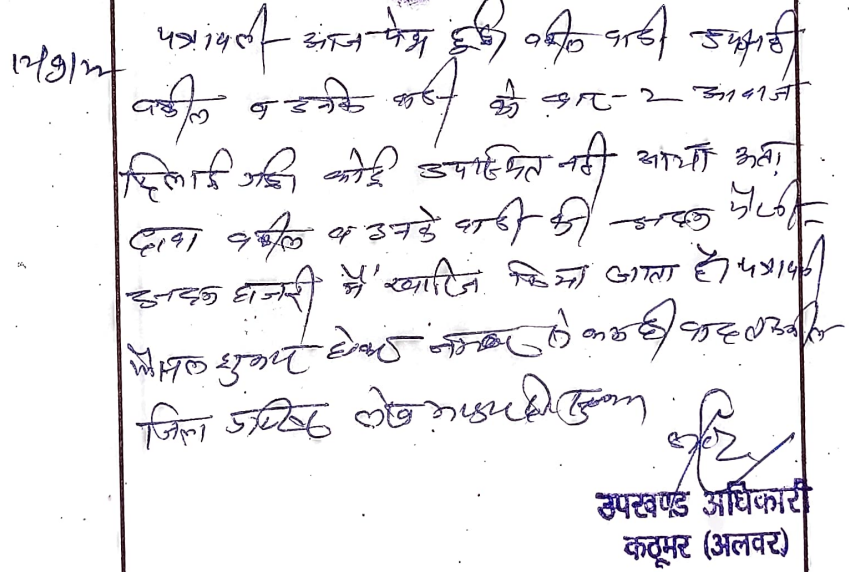 12/9/22 पत्रावली आज पेश हुई। वकील वादी उपस्थित
वकील व उनके वादी को बार-2 आवाज
दिलाई गई। कोई उपस्थित नहीं आया अतः
दावा वकील व उनके वादी की अदम पैरवी
अदम हाजरी में खारिज किया जाता है। पत्रावली
फैसल शुमार होकर नम्बर से कम हो बाद
जिला अभिलेख
उपखण्ड अधिकारी
कठूमर (अलवर)